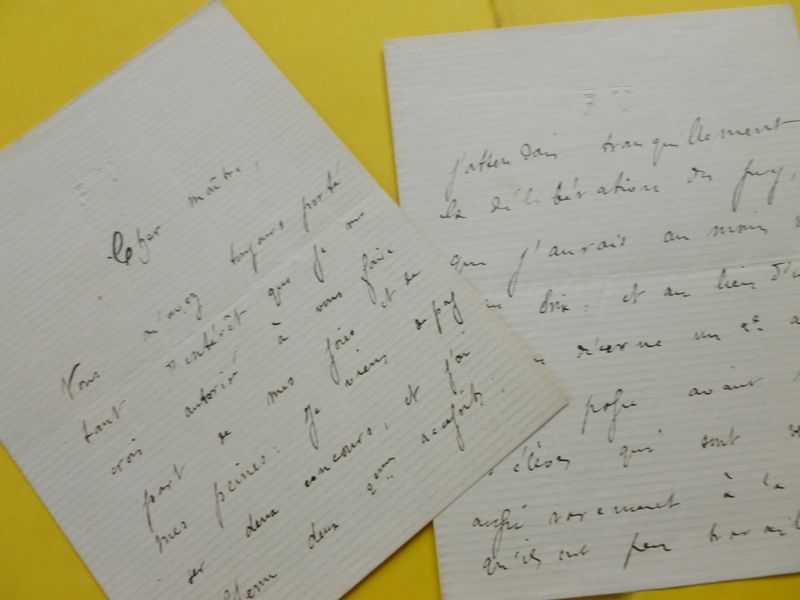 F T
Cher maître,
Vous m'avez toujours porté
tant d'intérêt que je me
crois autorisé à vous faire
part de mes joies et de
mes peines: Je viens de pas
ser deux concours, et j'ai
obtenu deux 2èmes accessits:
F T
j'attendais tranquillement
la délibération du jury,
que j'aurais au moins
un prix: et au lieu d'u
décerne un 2e a
passe avant
élèves qui sont
aussi rarement à la
qu'ils ont peu travail